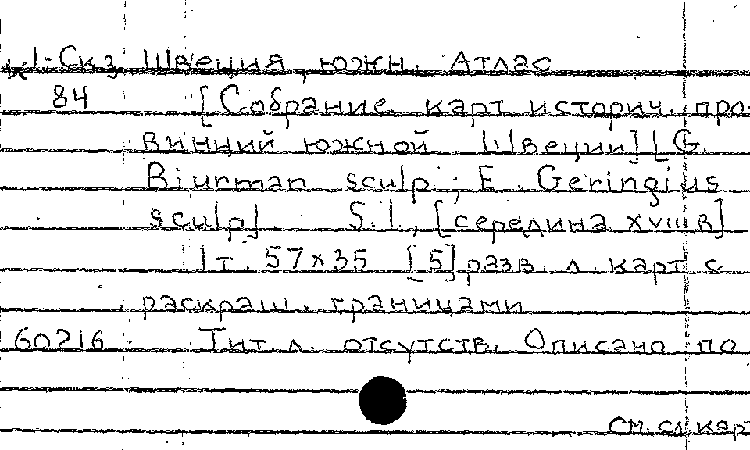 к1-Скз Швеция, южн. Атлас
84 [Собрание карт историч. про
винций южной Швеции] [G.
Biurman sculp.; E. Geringius
sculp]. S.l., [середина XVIII в]
1т. 57х35 [5] разв. л. карт с
раскраш. границами
60216 Тит л. отсутств. Описано по
См. сл. кар